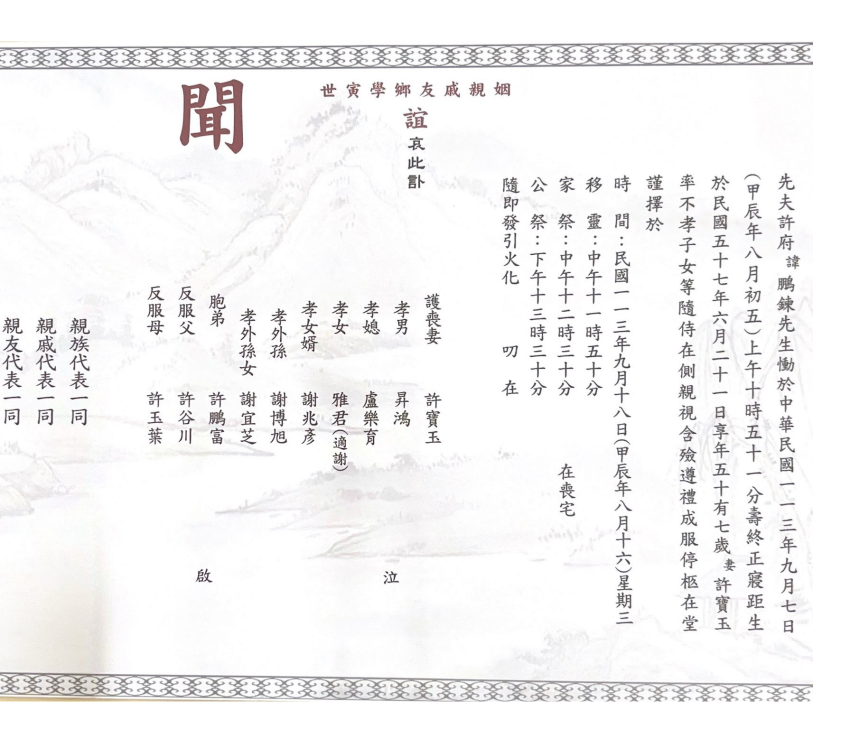 先夫許府諱鵬鍊先生慟於中華民國一一三年九月七日
(甲辰年八月初五)上午十時五十一分壽終正寢距生
於民國五十七年六月二十一日享年五十有七歲妻許寶玉
率不孝子女等隨侍在側親視含殮遵禮成服停柩在堂
謹擇於
時間:民國一一三年九月十八日(甲辰年八月十六)星期三
移靈:中午十一時五十分
家祭:中午十二時三十分 在喪宅
公祭:下午十三時三十分
隨即發引火化 叨在
姻親戚友鄉學寅世
誼哀此訃
聞
護喪妻 許寶玉
孝男 昇鴻
孝媳 盧樂育
孝女 雅君(適謝)
孝女婿 謝兆彥
孝外孫 謝博旭
孝外孫女 謝宜芝
胞弟 許鵬富
反服父 許谷川
反服母 許玉葉
泣
啟
親族代表一同
親戚代表一同
親友代表一同